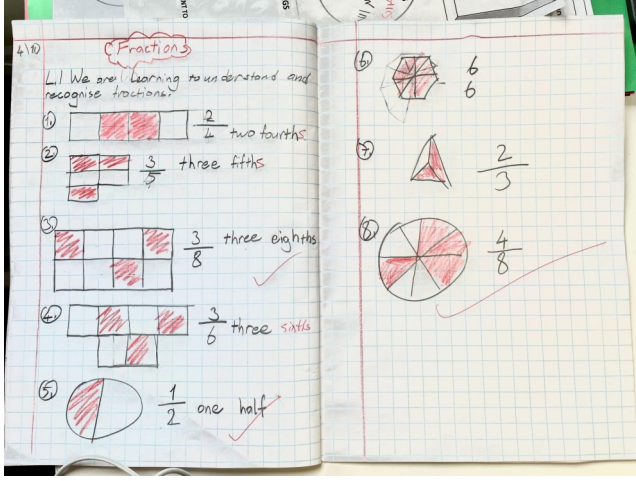 4/10
Fractions
L.I We are learning to understand and
recognise fractions.
1. 2/4 two fourths
2. 3/5 three fifths
3. 3/8 three eighths
4. 3/6 three sixths
5. 1/2 one half
6. 6 6
7. 2/3
8. 4/8